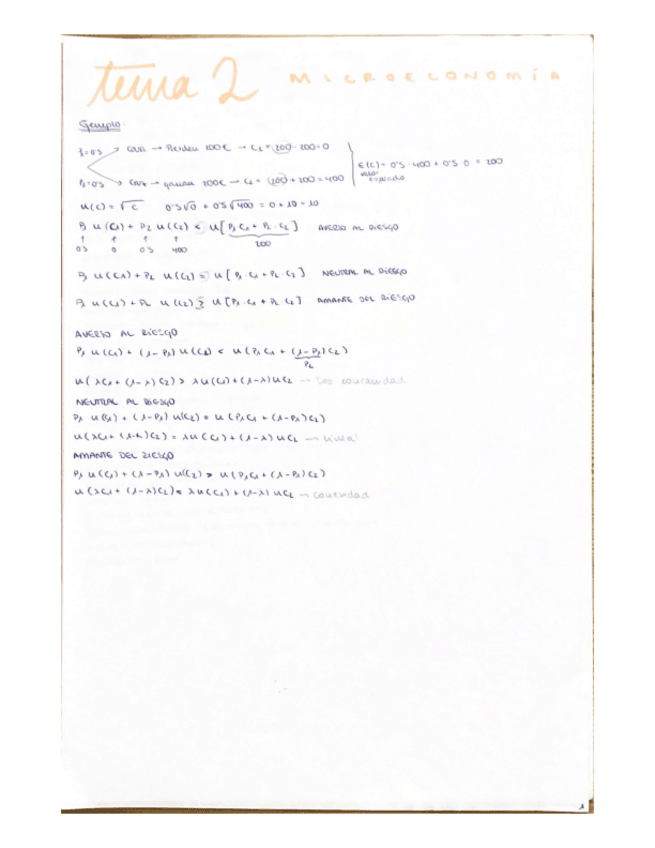 tema 2 MICROECONOMÍA
Ejemplo:
P₁=0'5 → CARA → Pierden 200€ → C₁ = 200 - 200 = 0
E(C) = 0'5 · 400 + 0'5 · 0 = 200
valor esperado
P₂=0'5 → ganan 200€ → C₂ = 200 + 200 = 400
u(C) = √C 0'5√0 + 0'5√400 = 0 + 10 = 10
P₁ u(C₁) + P₂ u(C₂) < u[P₁ C₁ + P₂ · C₂] AVERSO AL RIESGO
0'5 0 0'5 400 200
P₁ u(C₁) + P₂ u(C₂) = u[P₁ · C₁ + P₂ · C₂] NEUTRAL AL RIESGO
P₁ u(C₁) + P₂ u(C₂) > u[P₁ · C₁ + P₂ C₂] AMANTE DEL RIESGO
AVERSO AL RIESGO
P₁ u(C₁) + (1-P₁) u(C₂) < u(P₁C₁ + (1-P₁)C₂)
P₂
u(λC₁ + (1-λ)C₂) > λu(C₁) + (1-λ)uC₂ → concavidad
NEUTRAL AL RIESGO
P₁ u(C₁) + (1-P₁) u(C₂) = u(P₁C₁ + (1-P₁)C₂)
u(λC₁ + (1-λ)C₂) = λu(C₁) + (1-λ)uC₂ → lineal
AMANTE DEL RIESGO
P₁ u(C₁) + (1-P₁) u(C₂) > u(P₁C₁ + (1-P₁)C₂)
u(λC₁ + (1-λ)C₂) < λu(C₁) + (1-λ)uC₂ → convexidad
1